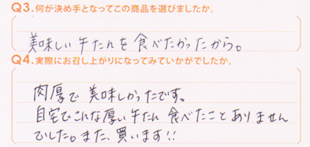 Q3.何が決め手となってこの商品を選びましたか。
美味しい牛たんを食べたかったから。
Q4.実際にお召し上がりになってみていかがでしたか。
肉厚で美味しかったです。
自宅でこんな厚い牛たん食べたことありません
でした。また、買います!!